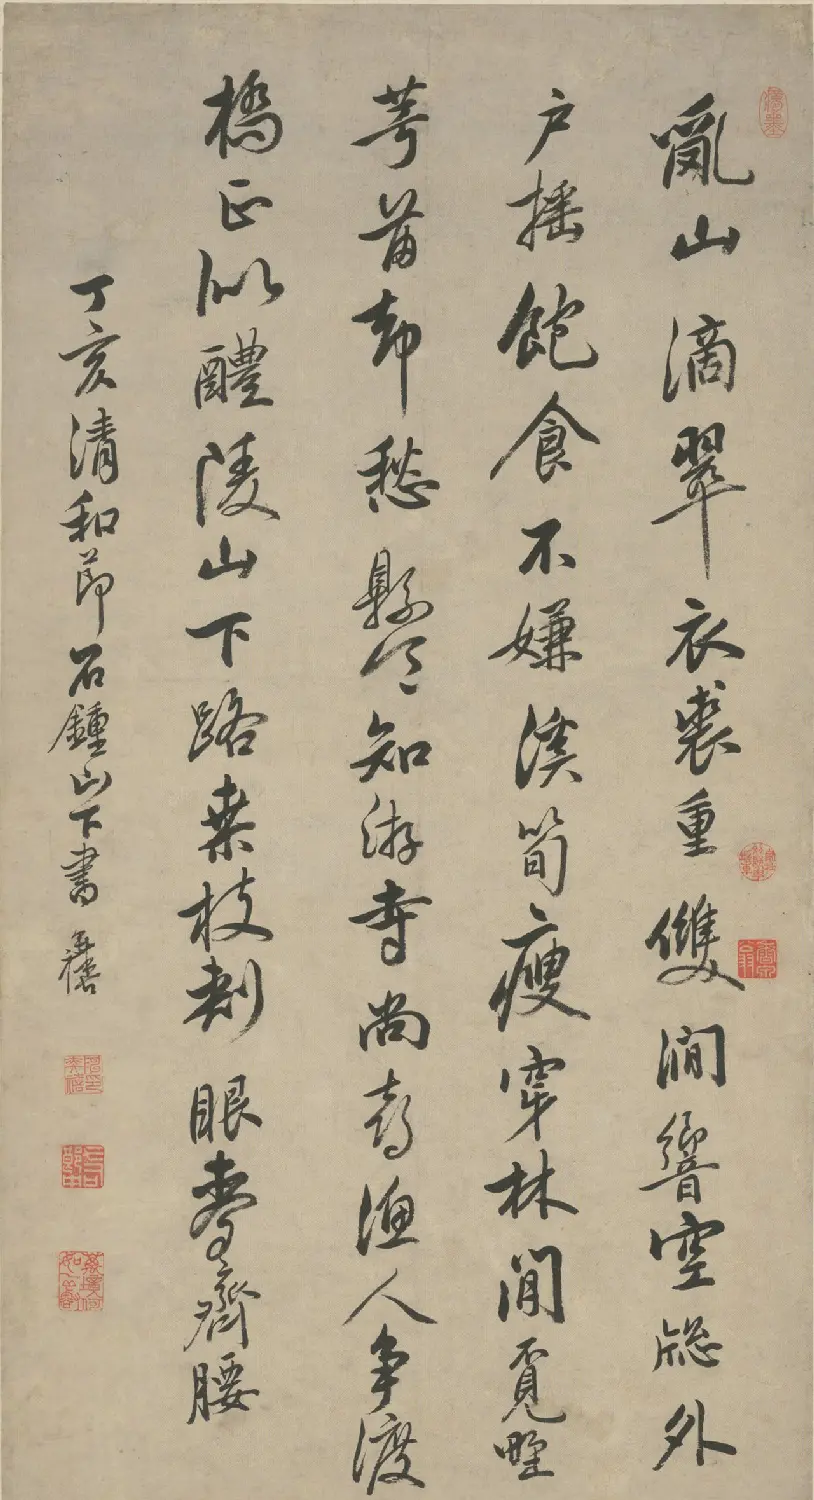 亂山滴翠衣裘重雙澗響空牕外
户搖飽食不嫌溪筍瘦穿林閒覓野
芎苗却愁縣令知游寺尚喜漁人爭渡
橋正似醴陵山下路桑枝刺眼麥齊腰
丁亥清和節石鍾山下書 奕禧